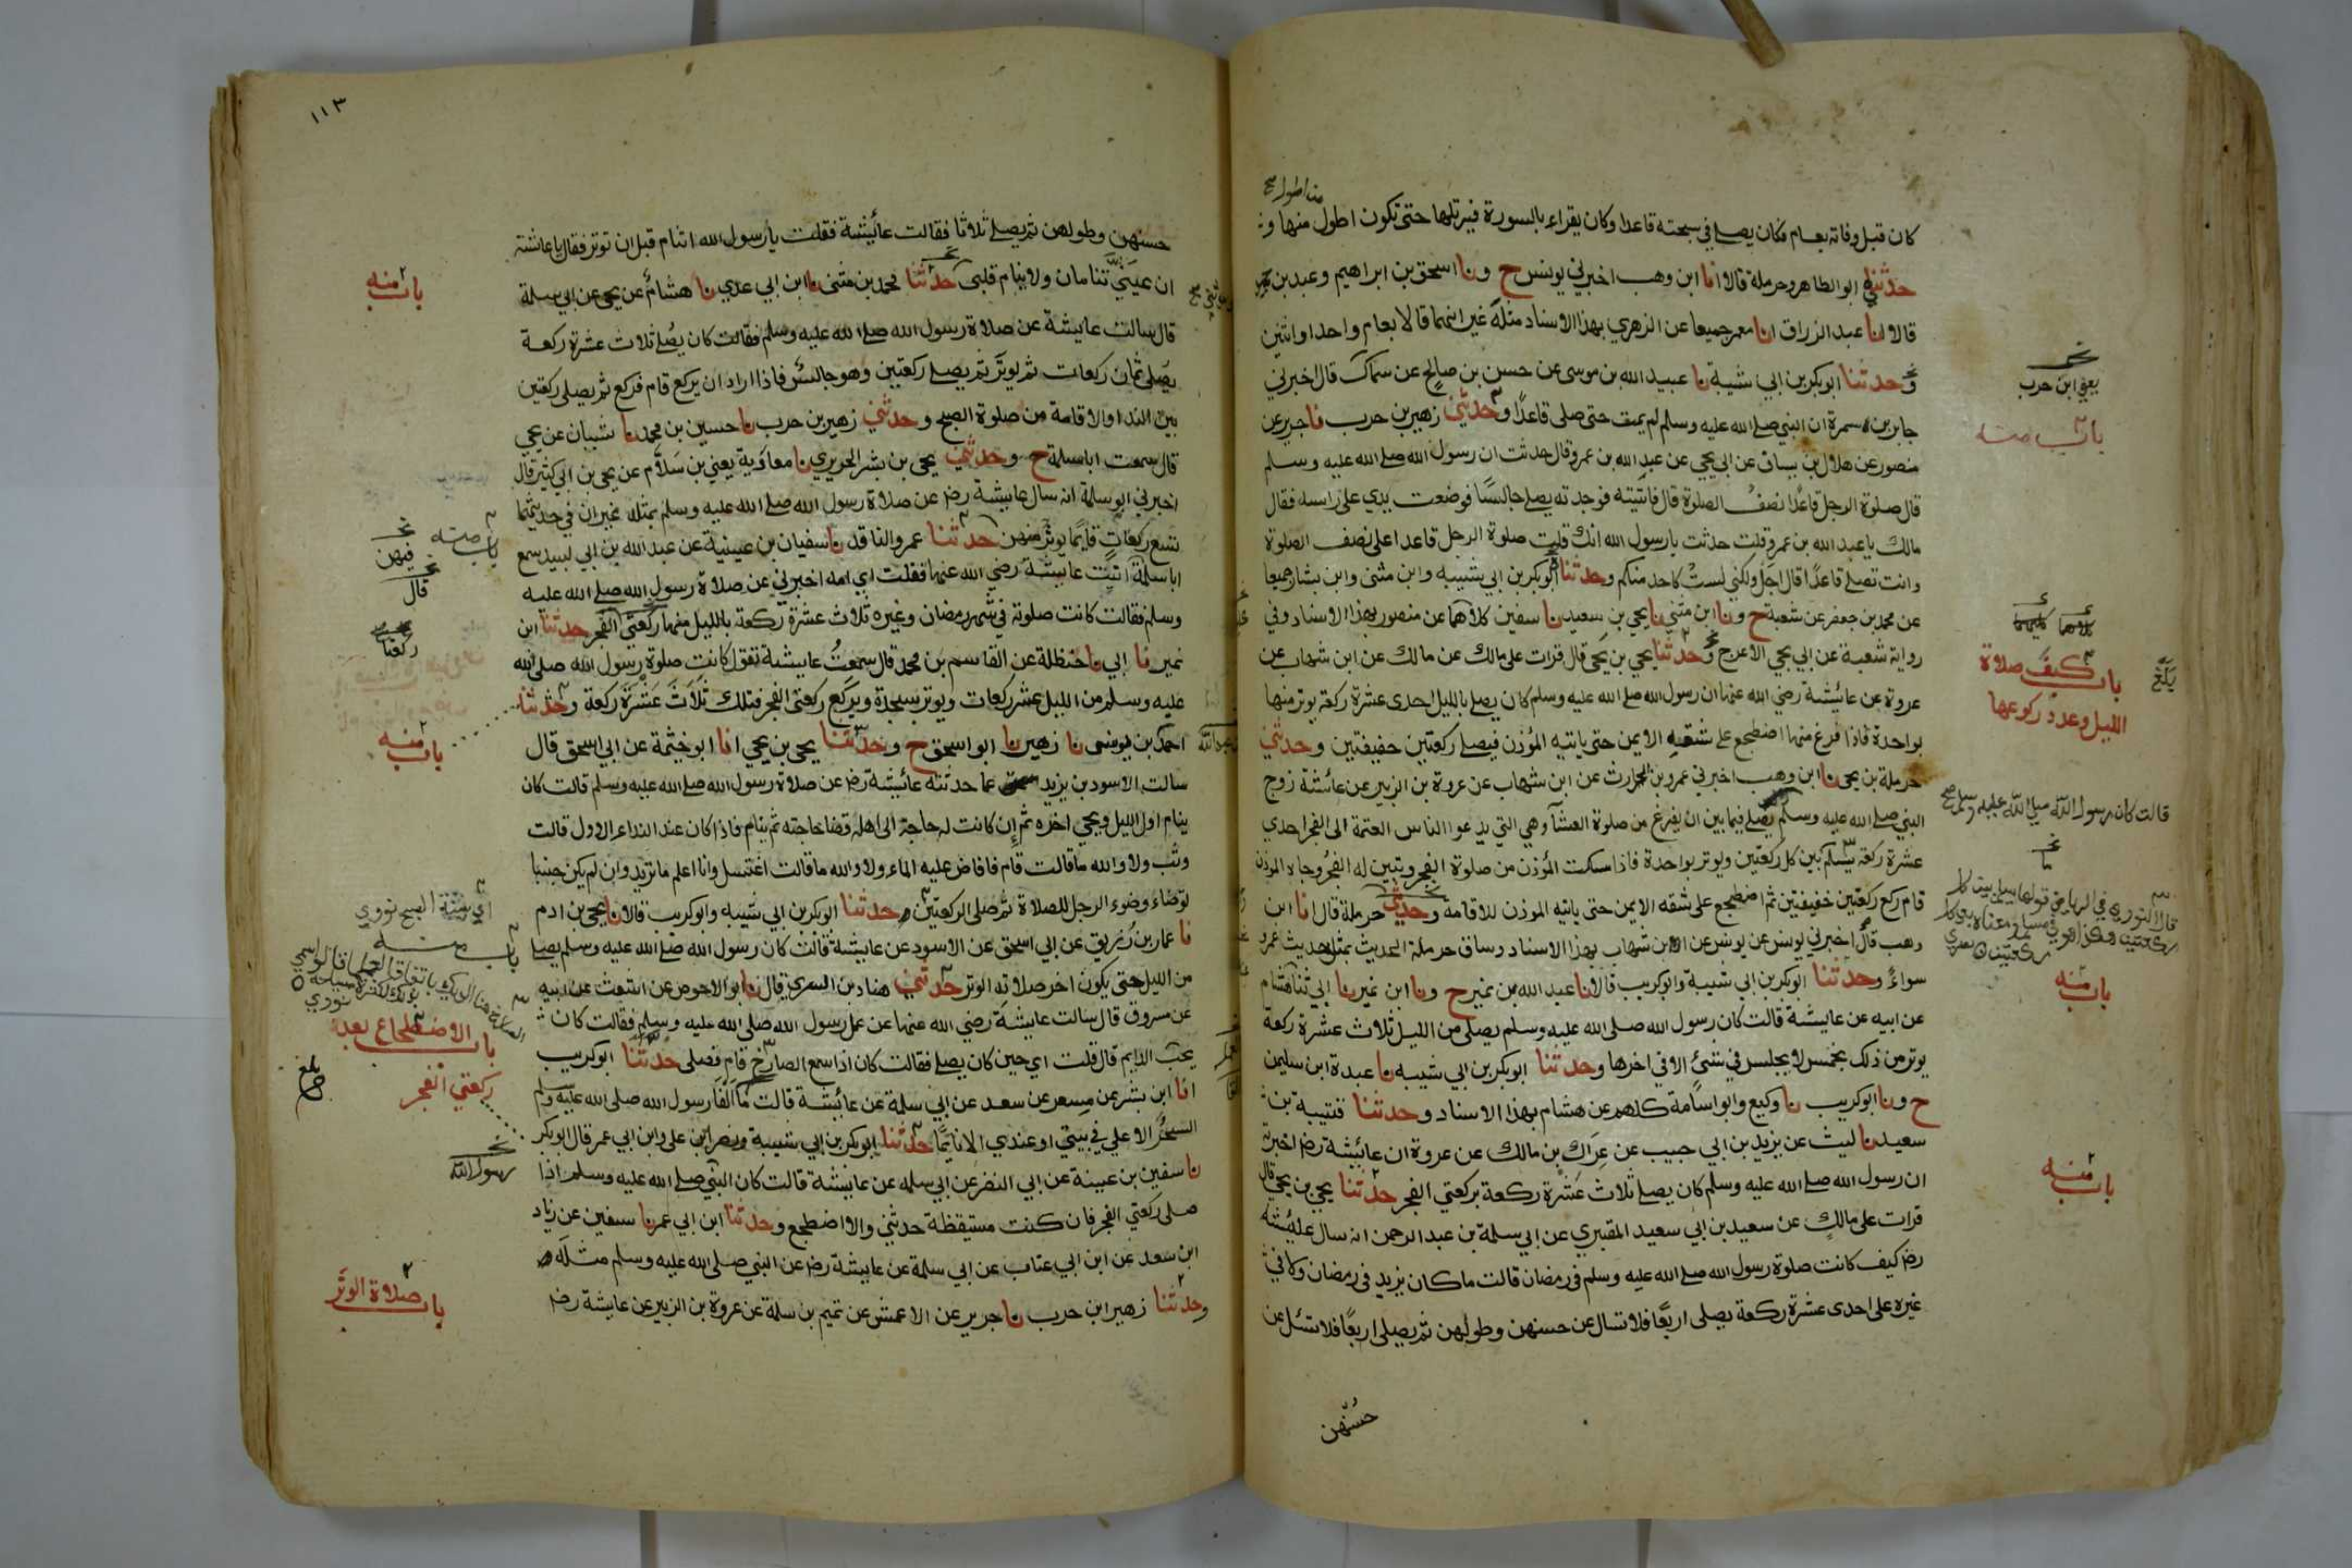 من اطول صح
كان قبل وفاته بعام فكان يصلي في سبحته قاعدا وكان يقراء بالسورة فيرتلها حتى تكون اطول منها و
حدثني ابو الطاهر وحرملة قالا انا ابن وهب اخبرني يونس ح ونا اسحق بن ابراهيم وعبد بن حميد
قالا انا عبد الرزاق انا معمر جميعا عن الزهري بهذا الاسناد مثله غير انهما قالا بعام واحد او اثنين
وحدثنا ابو بكر بن ابي شيبة نا عبيد الله بن موسى عن حسن بن صالح عن سماك قال اخبرني
يعني ابن حرب
جابر بن سمرة ان النبي صلى الله عليه وسلم لم يمت حتى صلى قاعدًا وحدثني زهير بن حرب نا جرير عن
باب منه
منصور عن هلال بن يساف عن ابي يحيى عن عبد الله بن عمرو قال حدثت ان رسول الله صلى الله عليه وسلم
قال صلوة الرجل قاعدًا نصف الصلوة قال فاتيته فوجدته يصلي جالسًا فوضعت يدي على راسه فقال
مالك يا عبد الله بن عمرو قلت حدثت يا رسول الله انك قلت صلوة الرجل قاعدا على نصف الصلوة
وانت تصلي قاعدًا قال اجل ولكني لست كاحد منكم وحدثنا ابو بكر بن ابي شيبه وابن مثنى وابن بشار جميعا
عن محمد بن جعفر عن شعبة ح ونا ابن مثنى نا يحيى بن سعيد نا سفين كلاهما عن منصور بهذا الاسناد وفي
كلاهما كليهما
رواية شعبة عن ابي يحيى الاعرج وحدثنا يحيى بن يحيى قال قرات على مالك عن مالك عن ابن شهاب عن
باب كيف صلاة
الليل وعدد ركوعها
عروة عن عائشة رضي الله عنها ان رسول الله صلى الله عليه وسلم كان يصلي بالليل احدى عشرة ركعة يوتر منها
بواحدة فاذا فرغ منها اضطجع على شقه الايمن حتى ياتيه المؤذن فيصلي ركعتين خفيفتين وحدثني
حرملة بن يحيى نا ابن وهب اخبرني عمرو بن الحارث عن ابن شهاب عن عروة بن الزبير عن عائشة زوج
قالت كان رسول الله صلى الله عليه وسلم صح
النبي صلى الله عليه وسلم يصلي فيما بين ان يفرغ من صلوة العشآ وهي التي يدعوا الناس العتمة الى الفجر احدي
عشرة ركعة يسلم بين كل ركعتين ويوتر بواحدة فاذا سكت المؤذن من صلوة الفجر وتبين له الفجر وجاه الموذن
قام ركع ركعتين خفيفتين ثم اضطجع على شقه الايمن حتى ياتيه الموذن للاقامه وحدثني حرملة قال نا ابن
وهب قال اخبرني يونس عن ابن شهاب بهذا الاسناد وساق حرملة الحديث بمثل حديث عمرو
سواءً وحدثنا ابو بكر بن ابي شيبة وابو كريب قالا نا عبد الله بن نمير ح ونا ابن نمير نا ابي ثنا هشام
باب منه
عن ابيه عن عايشة قالت كان رسول الله صلى الله عليه وسلم يصلي من الليل ثلاث عشرة ركعة
يوتر من ذلك بخمس لا يجلس في شئ الا في اخرها وحدثنا ابو بكر بن ابي شيبه نا عبدة ابن سليمن
ح ونا ابو كريب نا وكيع وابو اسامة كلهم عن هشام بهذا الاسناد وحدثنا قتيبة بن
سعيد نا ليث عن يزيد بن ابي حبيب عن عراك بن مالك عن عروة ان عائيشة رضه اخبرته
ان رسول الله صلى الله عليه وسلم كان يصلي ثلاث عشرة ركعة بركعتي الفجر حدثنا يحيى بن يحيى قال
باب منه
قرات على مالك عن سعيد بن ابي سعيد المقبري عن ابي سلمة بن عبد الرحمن انه سال عائيشة
رضه كيف كانت صلوة رسول الله صلى الله عليه وسلم في رمضان قالت ما كان يزيد في رمضان ولا في
غيره على احدى عشرة ركعة يصلي اربعًا فلا تسال عن حسنهن وطولهن ثم يصلي اربعًا فلا تسئل عن
حسنهن
١١٣
حسنهن وطولهن ثم يصلي ثلاثا فقالت عائيشة فقلت يا رسول الله اتنام قبل ان توتر فقال يا عائشة
ان عينَيّ تنامان ولا ينام قلبي حدثنا محمد بن مثنى نا ابن ابي عدي نا هشام عن يحيى عن ابي سلمة
باب منه
قال سالت عايشة عن صلاة رسول الله صلى الله عليه وسلم فقالت كان يصلي ثلاث عشرة ركعة
يصلي ثمان ركعات ثم يوتر ثم يصلي ركعتين وهو جالس فاذا اراد ان يركع قام فركع ثم يصلي ركعتين
بين الندا والاقامة من صلوة الصبح وحدثني زهير بن حرب نا حسين بن محمد نا شيبان عن يحيى
قال سمعت ابا سلمة ح وحدثني يحيى بن بشر الحريري نا معاوية يعني بن سلام عن يحيى بن ابي كثير قال
اخبرني ابو سلمة انه سال عايشة رضه عن صلاة رسول الله صلى الله عليه وسلم بمثله غير ان في حديثهما
تسع ركعات قايمًا يوتر منهن حدثنا عمرو الناقد نا سفيان بن عيينة عن عبد الله بن ابي لبيد سمع
باب منه
فيهن
ابا سلمة اتيت عايشة رضي الله عنها فقلت اي امه اخبريني عن صلاة رسول الله صلى الله عليه
قال
وسلم فقالت كانت صلوته في شهر رمضان وغيره ثلاث عشرة ركعة بالليل منها ركعتي الفجر حدثنا ابن
ركعتا
نمير نا ابي نا حنظلة عن القاسم بن محمد قال سمعت عايشة تقول كانت صلوة رسول الله صلى الله
عليه وسلم من الليل عشر ركعات ويوتر بسجدة ويركع ركعتي الفجر فتلك ثلاث عشرة ركعة وحدثنا
احمد بن يونس نا زهير نا ابو اسحق ح وحدثنا يحيى بن يحيى انا ابو خيثمة عن ابي اسحق قال
باب منه
سالت الاسود بن يزيد عما حدثته عائيشة رضه عن صلاة رسول الله صلى الله عليه وسلم قالت كان
ينام اول الليل ويحيي اخره ثم إن كانت له حاجة الى اهله قضا حاجته ثم ينام فاذا كان عند النداء الاول قالت
وثب ولا والله ما قالت قام فافاض عليه الماء ولا والله ما قالت اغتسل وانا اعلم ما تريد وان لم يكن جنبا
توضاء وضوء الرجل للصلاة ثم صلى الركعتين حدثنا ابو بكر بن ابي شيبه وابو كريب قالا نا يحيى بن ادم
باب منه
نا عمار بن رزيق عن ابي اسحق عن الاسود عن عايشة قالت كان رسول الله صلى الله عليه وسلم يصلي
من الليل حتى يكون اخر صلاته الوتر حدثني هناد بن السري قال نا ابو الاحوص عن اشعث عن ابيه
عن مسروق قال سالت عايشة رضي الله عنها عن عمل رسول الله صلى الله عليه وسلم فقالت كان
يحب الدايم قال قلت اي حين كان يصلي فقالت كان اذا سمع الصارخ قام فصلى حدثنا ابو كريب
باب الاضطجاع بعد
ركعتي الفجر
انا ابن بشر عن مسعر عن سعد عن ابي سلمة عن عائشة قالت ما الفا رسول الله صلى الله عليه وسلم
السحرُ الاعلي في بيتي او عندي الا نايمًا حدثنا ابو بكر بن ابي شيبة ونصر بن علي وابن ابي عمر قال ابو بكر
نا سفين بن عيينة عن ابي النضر عن ابي سلمه عن عايشة قالت كان النبي صلى الله عليه وسلم اذا
رسول الله
صلى ركعتي الفجر فان كنت مستيقظة حدثني والا اضطجع وحدثنا ابن ابي عمر نا سفين عن زياد
ابن سعد عن ابن ابي عتاب عن ابي سلمة عن عايشة رضه عن النبي صلى الله عليه وسلم مثله
وحدثنا زهير ابن حرب نا جرير عن الاعمش عن تميم بن سلمة عن عروة بن الزبير عن عايشة رضه
باب صلاة الوتر